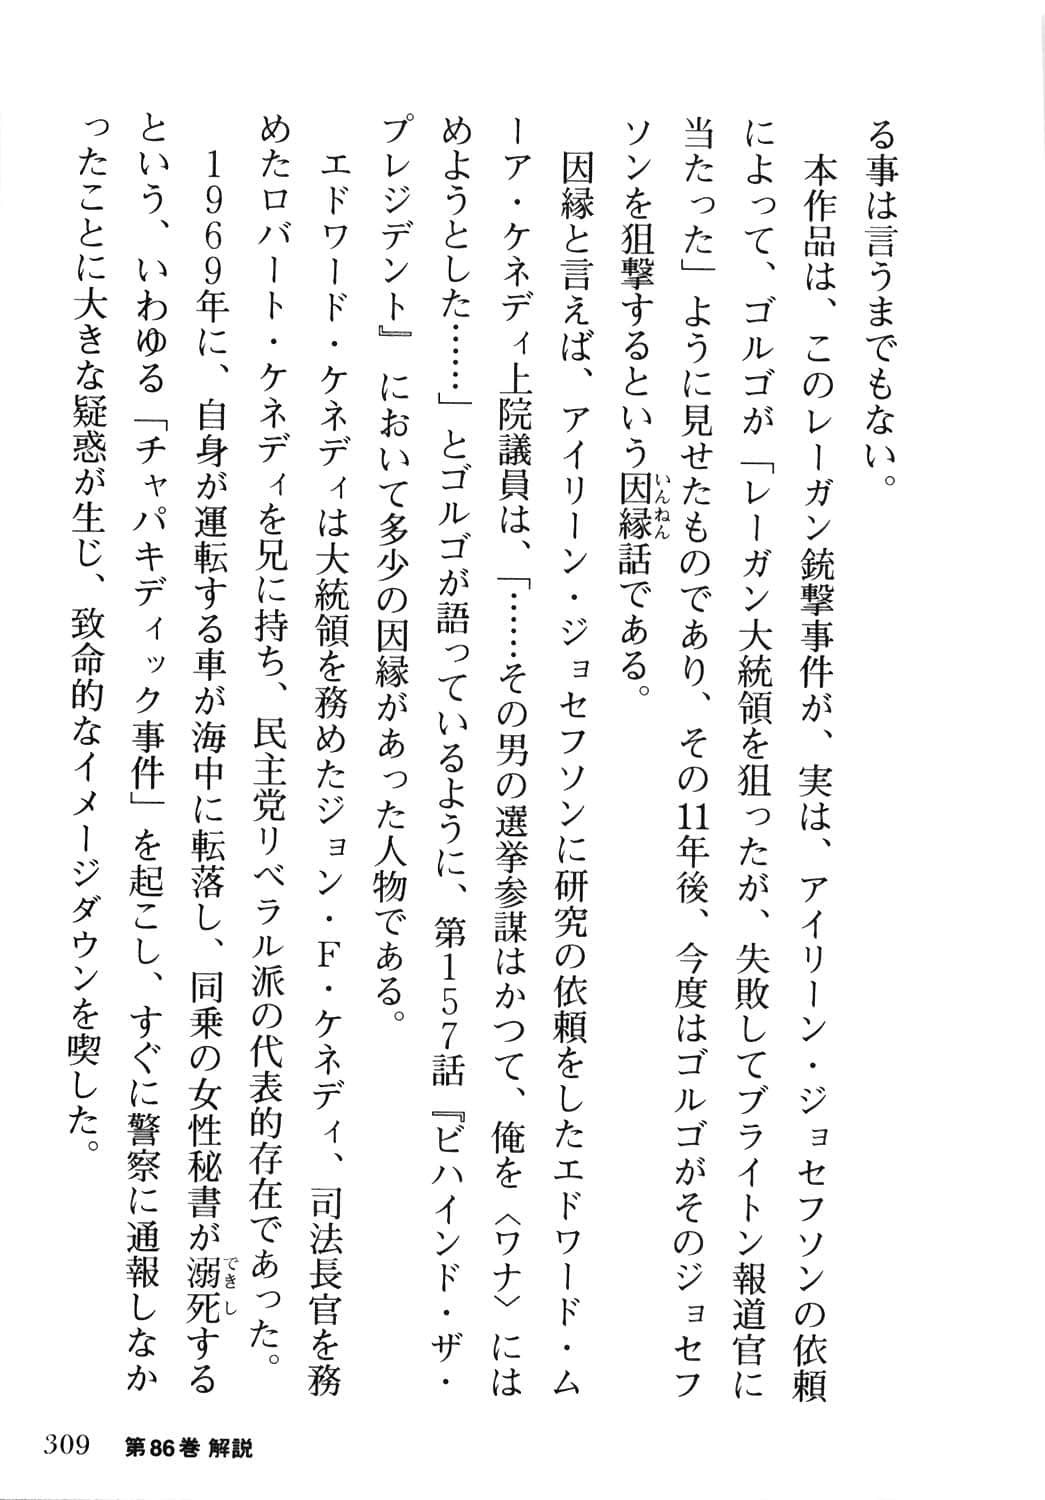 る事は言うまでもない。
本作品は、このレーガン銃撃事件が、実は、アイリーン・ジョセフソンの依頼
によって、ゴルゴが「レーガン大統領を狙ったが、失敗してブライトン報道官に
当たった」ように見せたものであり、その11年後、今度はゴルゴがそのジョセフ
ソンを狙撃するという因縁話である。
いんねん
因縁と言えば、アイリーン・ジョセフソンに研究の依頼をしたエドワード・ム
ーア・ケネディ上院議員は、「……その男の選挙参謀はかつて、俺を〈ワナ〉には
めようとした……」とゴルゴが語っているように、第157話『ビハインド・ザ・
プレジデント』において多少の因縁があった人物である。
エドワード・ケネディは大統領を務めたジョン・F・ケネディ、司法長官を務
めたロバート・ケネディを兄に持ち、民主党リベラル派の代表的存在であった。
1969年に、自身が運転する車が海中に転落し、同乗の女性秘書が溺死する
できし
という、いわゆる「チャパキディック事件」を起こし、すぐに警察に通報しなか
ったことに大きな疑惑が生じ、致命的なイメージダウンを喫した。
309 第86巻 解説